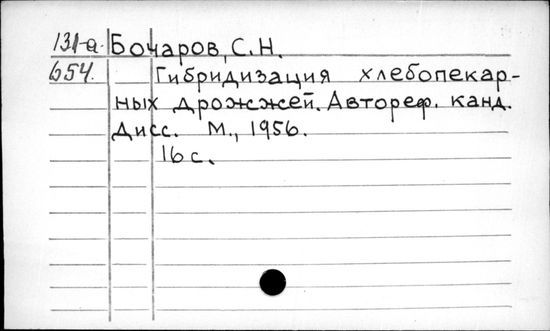 131-а Бочаров, С.Н.
654. Гибридизация хлебопекар-
ных дрожжей. Автореф. канд.
Дисс. М., 1956.
16 с.